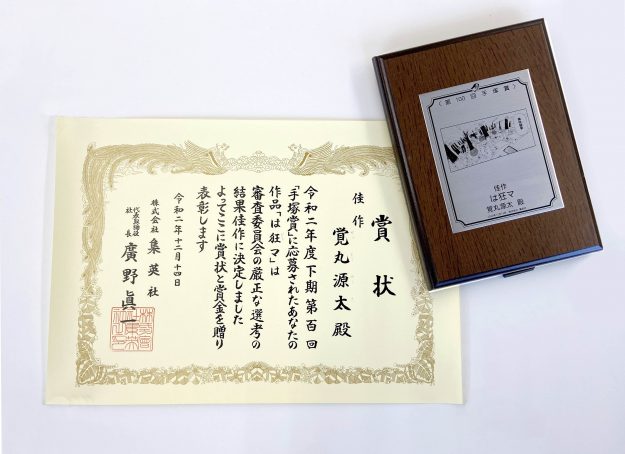 賞状
佳作
覚丸源太 殿
令和二年度下期第百回
「手塚賞」に応募されたあなたの
作品「は狂マ」は
審査委員会の厳正な選考の
結果佳作に決定しました
よってここに賞状と賞金を贈り
表彰します
令和二年十二月十四日
株式会社 集英社
代表取締役
社長
廣野眞一
〈第100回手塚賞〉
佳作
は狂マ
覚丸源太 殿